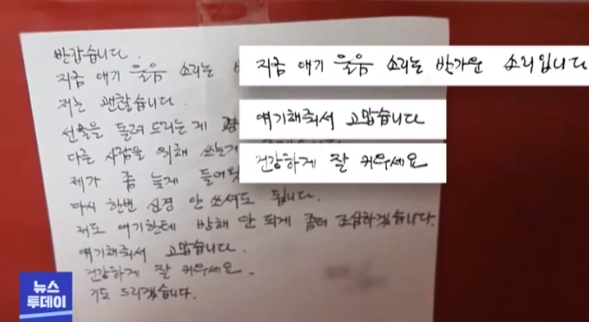 반갑습니다.
지금 애기 울음 소리는
저는 괜찮습니다.
선물을 돌려 드리는 게
다른 사람을 위해 쓰는게
제가 좀 늦게
다시 한번 신경 안 쓰셔도 됩니다.
저도 애기한테 방해 안 되게 좀더 조심하겠습니다.
얘기해줘서 고맙습니다.
건강하게 잘 키우세요.
기도 드리겠습니다.
지금 애기 울음 소리는 반가운 소리입니다
얘기해줘서 고맙습니다
건강하게 잘 키우세요
뉴스
투데이